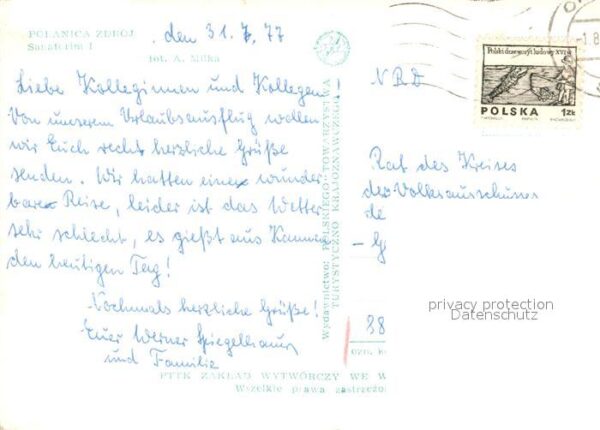 POLANICA ZDRÓJ
Sanatorium I
fot. A. Milka
den 31. 7. 77
Liebe Kolleginnen und Kollegen!
Von unserem Urlaubsausflug wollen
wir Euch recht herzliche Grüße
senden. Wir hatten eine wunder-
bare Reise, leider ist das Wetter
sehr schlecht, es gießt aus Kannen
den heutigen Tag!
Nochmals herzliche Grüße!
Euer Werner
und Familie
Wydawnictwo: POLSKIEGO TOWARZYSTWA
TURYSTYCZNO KRAJOZNAWCZEGO
PTTK ZAKŁAD WYTWÓRCZY WE W
Wszelkie prawa zastrzeżo
NRD
Polski drzeworyt ludowy XVI w
POLSKA 1ZŁ
-1.8
Rat des Kreises
der Volksausschusses
de
- G
privacy protection
Datenschutz
38